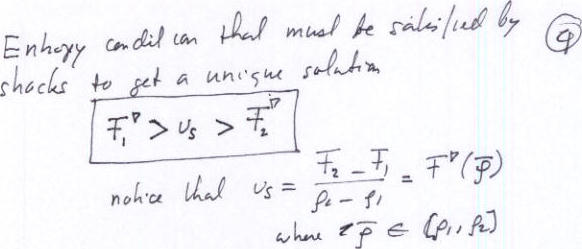 Entropy condition that must be satisfied by ④
shocks to get a unique solution
F₁' > υₛ > F₂'
notice that υₛ = (F₂ - F₁)/(ρ₂ - ρ₁) = F'(ρ̄)
where ρ̄ ∈ [ρ₁, ρ₂]